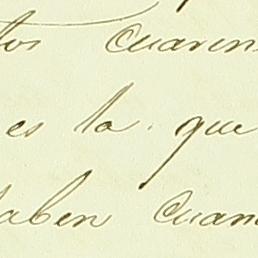 tos Cuaren
es la que
saben Cuan